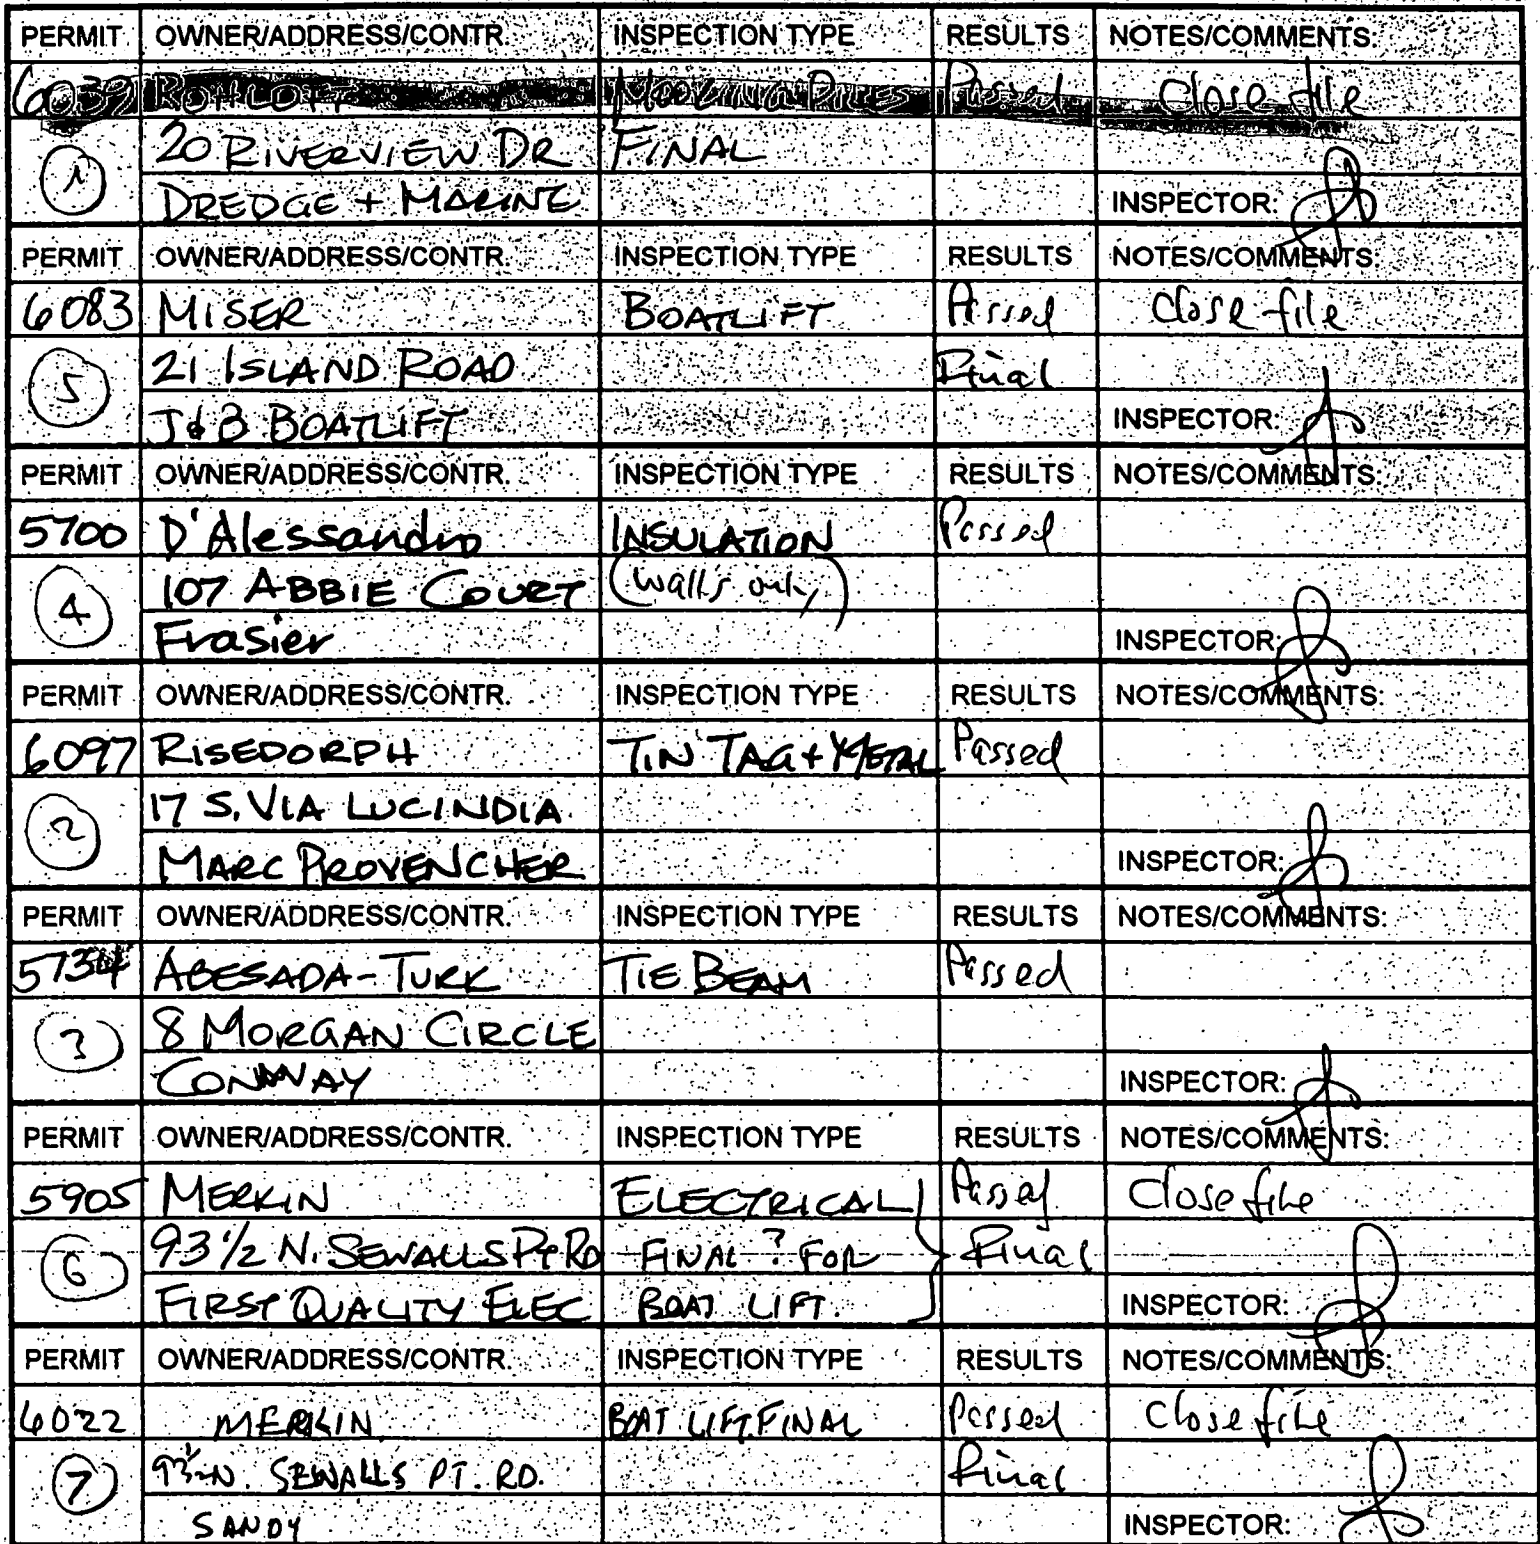 PERMIT OWNER/ADDRESS/CONTR. INSPECTION TYPE RESULTS NOTES/COMMENTS:
6039 MOORING PILES Passed Close file
1 20 RIVERVIEW DR FINAL
DREDGE + MARINE INSPECTOR:
PERMIT OWNER/ADDRESS/CONTR. INSPECTION TYPE RESULTS NOTES/COMMENTS:
6083 MISER BOATLIFT Passed Close file
5 21 ISLAND ROAD Final
J & B BOATLIFT INSPECTOR:
PERMIT OWNER/ADDRESS/CONTR. INSPECTION TYPE RESULTS NOTES/COMMENTS:
5700 D'Alessandro INSULATION Passed
4 107 ABBIE COURT (walls only)
Frasier INSPECTOR:
PERMIT OWNER/ADDRESS/CONTR. INSPECTION TYPE RESULTS NOTES/COMMENTS:
6097 RISEDORPH TIN TAG + METAL Passed
2 17 S. VIA LUCINDIA
MARC PROVENCHER INSPECTOR:
PERMIT OWNER/ADDRESS/CONTR. INSPECTION TYPE RESULTS NOTES/COMMENTS:
5734 ABESADA-TURK TIE BEAM Passed
3 8 MORGAN CIRCLE
CONWAY INSPECTOR:
PERMIT OWNER/ADDRESS/CONTR. INSPECTION TYPE RESULTS NOTES/COMMENTS:
5905 MERKIN ELECTRICAL Passed Close file
6 93 1/2 N. SEWALLS PT RD FINAL ? FOR Final
FIRST QUALITY ELEC BOAT LIFT. INSPECTOR:
PERMIT OWNER/ADDRESS/CONTR. INSPECTION TYPE RESULTS NOTES/COMMENTS:
6022 MERKIN BOAT LIFT FINAL Passed Close file
7 93 1/2 N. SEWALLS PT. RD. Final
SANDY INSPECTOR: